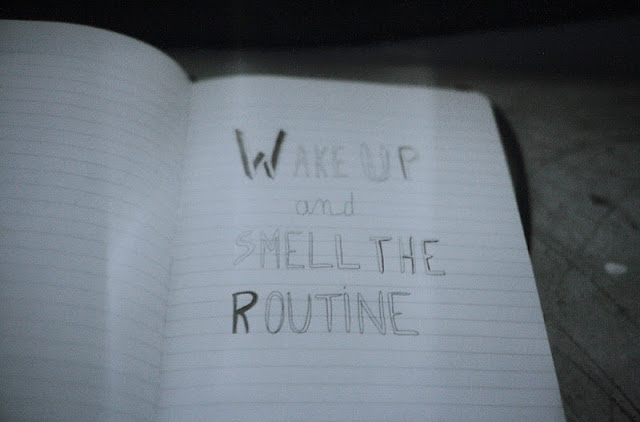 WAKE UP
and
SMELL THE
ROUTiNE